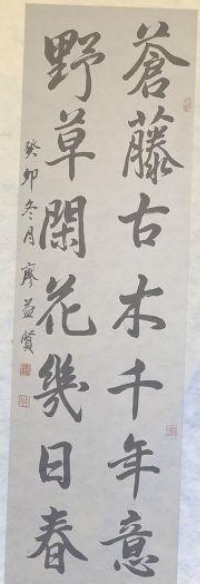 蒼藤古木千年意
野草閑花幾日春
癸卯冬月廖益賢